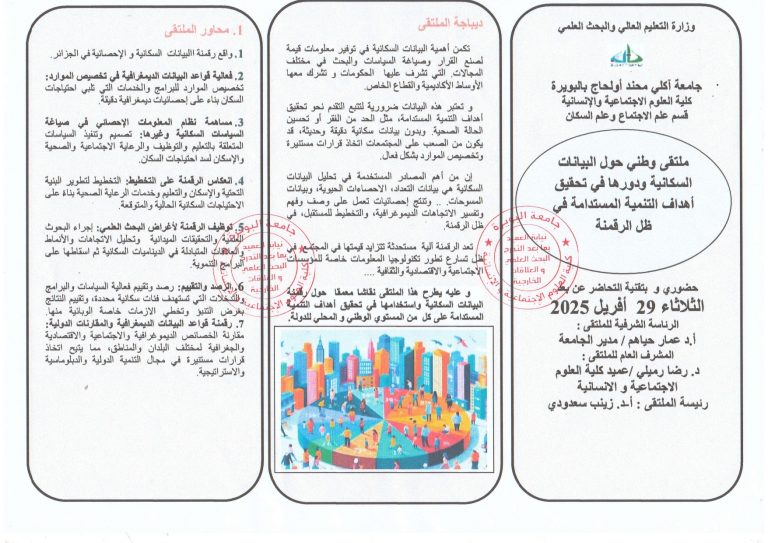 وزارة التعليم العالي والبحث العلمي
جامعة أكلي محند أولحاج بالبويرة
كلية العلوم الاجتماعية والإنسانية
قسم علم الاجتماع وعلم السكان
ملتقى وطني حول البيانات
السكانية ودورها في تحقيق
أهداف التنمية المستدامة في
ظل الرقمنة
حضوري و بتقنية التحاضر عن بعد
الثلاثاء 29 أفريل 2025
الرئاسة الشرفية للملتقى :
أ.د عمار حياهم / مدير الجامعة
المشرف العام للملتقى :
د. رضا رميلي /عميد كلية العلوم
الاجتماعية و الانسانية
رئيسة الملتقى : أ.د. زينب سعدودي
ديباجة الملتقى
تكمن أهمية البيانات السكانية في توفير معلومات قيمة
لصنع القرار وصياغة السياسات والبحث في مختلف
المجالات. التي تشرف عليها الحكومات و تشرك معها
الأوساط الأكاديمية والقطاع الخاص.
و تعتبر هذه البيانات ضرورية لتتبع التقدم نحو تحقيق
أهداف التنمية المستدامة، مثل الحد من الفقر أو تحسين
الحالة الصحية. وبدون بيانات سكانية دقيقة وحديثة، قد
يكون من الصعب على المجتمعات اتخاذ قرارات مستنيرة
وتخصيص الموارد بشكل فعال.
إن من أهم المصادر المستخدمة في تحليل البيانات
السكانية هي بيانات التعداد، الاحصاءات الحيوية، وبيانات
المسوحات. .. وتنتج إحصائيات تعمل على وصف وفهم
وتفسير الاتجاهات الديموغرافية، والتخطيط للمستقبل، في
ظل الرقمنة.
تعد الرقمنة آلية مستحدثة تتزايد قيمتها في المجتمع في
ظل تسارع تطور تكنولوجيا المعلومات خاصة للمؤسسات
الاجتماعية والاقتصادية والثقافية ....
و عليه يطرح هذا الملتقى نقاشا معمقا حول رقمنة
البيانات السكانية واستخدامها في تحقيق أهداف التنمية
المستدامة على كل من المستوي الوطني و المحلي للدولة.
1. محاور الملتقى
1. واقع رقمنة االبيانات السكانية و الإحصائية في الجزائر.
2. فعالية قواعد البيانات الديمغرافية في تخصيص الموارد:
تخصيص الموارد للبرامج والخدمات التي تلبي احتياجات
السكان بناء على إحصائيات ديمغرافية دقيقة.
3. مساهمة نظام المعلومات الإحصائي في صياغة
السياسات السكانية وغيرها: تصميم وتنفيذ السياسات
المتعلقة بالتعليم والتوظيف والرعاية الاجتماعية والصحية
والإسكان لسد احتياجات السكان.
4. انعكاس الرقمنة على التخطيط: التخطيط لتطوير البنية
التحتية والإسكان والتعليم وخدمات الرعاية الصحية بناءً على
الاحتياجات السكانية الحالية والمتوقعة.
5. توظيف الرقمنة لأغراض البحث العلمي: إجراء البحوث
العلمية والتحقيقات الميدانية وتحليل الاتجاهات والأنماط
والعلاقات المتبادلة في الديناميات السكانية ثم اسقاطها على
البرامج التنموية.
6. الرصد والتقييم: رصد وتقييم فعالية السياسات والبرامج
والتدخلات التي تستهدف فئات سكانية محددة، وتقييم النتائج
بغرض التنبؤ وتخطي الازمات خاصة الوبائية منها.
7. رقمنة قواعد البيانات الديمغرافية والمقارنات الدولية:
مقارنة الخصائص الديموغرافية والاجتماعية والاقتصادية
والجغرافية لمختلف البلدان والمناطق، مما يتيح اتخاذ
قرارات مستنيرة في مجال التنمية الدولية والدبلوماسية
والاستراتيجية.
جامعة البويرة
نيابة العميد